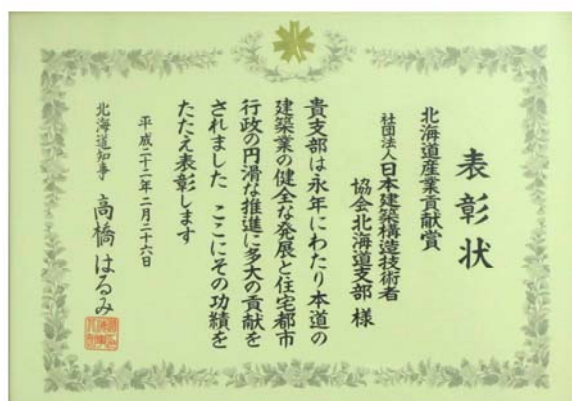 表彰状
北海道産業貢献賞
社団法人日本建築構造技術者
協会北海道支部 様
貴支部は永年にわたり本道の
建築業の健全な発展と住宅都市
行政の円滑な推進に多大の貢献を
されました ここにその功績を
たたえ表彰します
平成二十二年二月二十六日
北海道知事 高橋はるみ